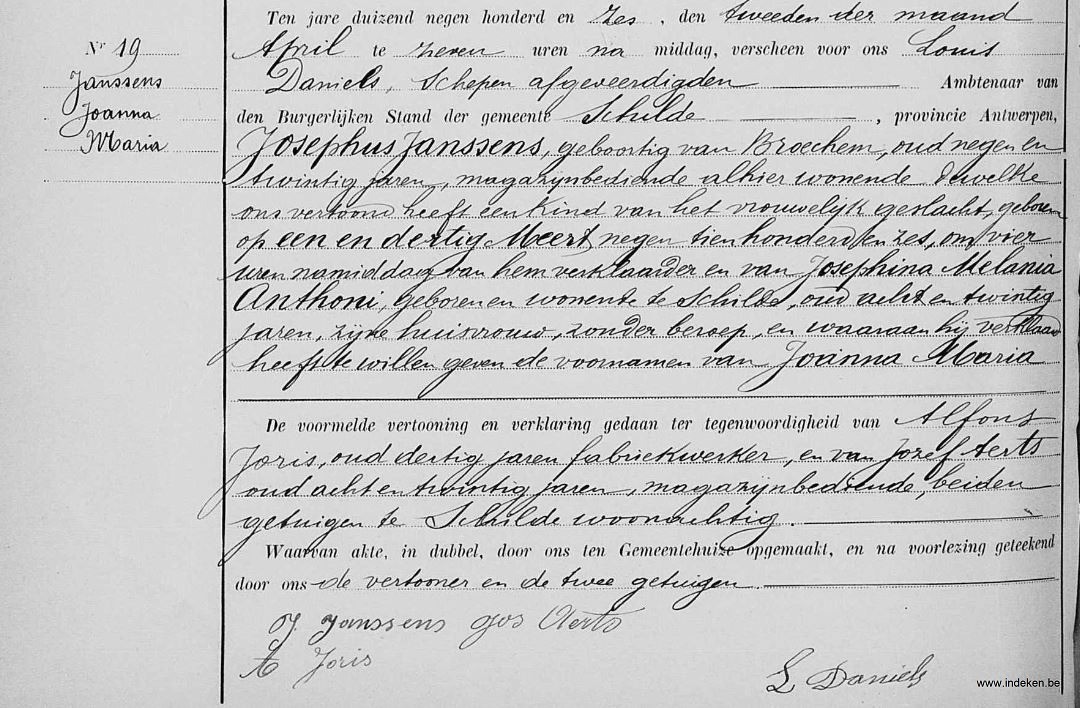 Nr 19
Janssens
Joanna
Maria
Ten jare duizend negen honderd en zes, den tweeden der maand
April te zeven uren na middag, verscheen voor ons Louis
Daniels, Schepen afgeveerdigden Ambtenaar van
den Burgerlijken Stand der gemeente Schilde, provincie Antwerpen,
Josephus Janssens, geboortig van Broechem, oud negen en
twintig jaren, magazijnbediende alhier wonende dewelke
ons vertoond heeft een kind van het vrouwelijk geslacht, geboren
op een en dertig Meert negentienhonderd en zes, om vier
uren namiddag van hem verklaarder en van Josephina Melania
Anthoni, geboren en wonente te Schilde, oud acht en twintig
jaren, zijne huisvrouw, zonder beroep, en waaraan hij verklaard
heeft te willen geven de voornamen van Joanna Maria
De voormelde vertooning en verklaring gedaan ter tegenwoordigheid van Alfons
Joris, oud dertig jaren fabriekwerker, en van Jozef Aerts
oud acht en twintig jaren, magazijnbediende, beiden
getuigen te Schilde woonachtig.
Waarvan akte, in dubbel, door ons ten Gemeentehuize opgemaakt, en na voorlezing geteekend
door ons de vertooner en de twee getuigen.
J. Janssens Jos Aerts
A Joris
L Daniels
www.indeken.be